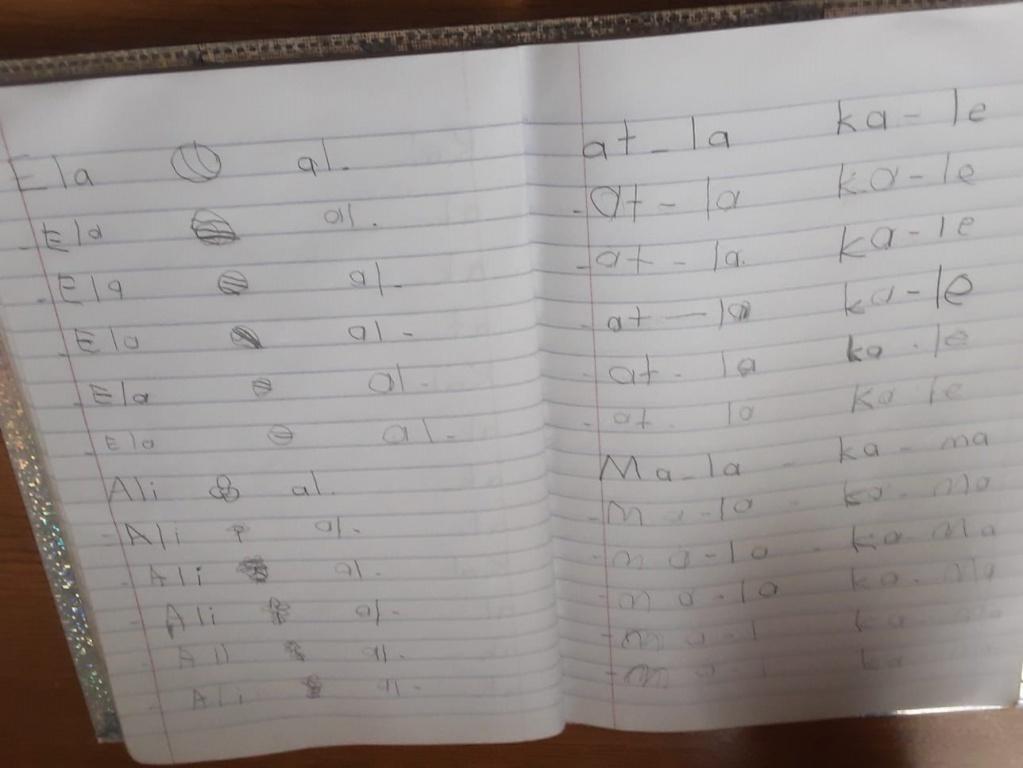 Ela al.
- Ela al.
- Ela al.
- Ela al -
- Ela al.
- Ela al -
Ali al.
- Ali al.
- Ali al.
- Ali al -
- Ali al -
- Ali al -
at - la ka - le
- at - la ka - le
- at - la. ka - le
- at — la ka - le
- at - la ka - le
- at - la ka - le
Ma - la - ka - ma
- ma - la - ka - ma
- ma - la - ka - ma
- ma - la ka - ma
- ma - l ka
- ma - l ka